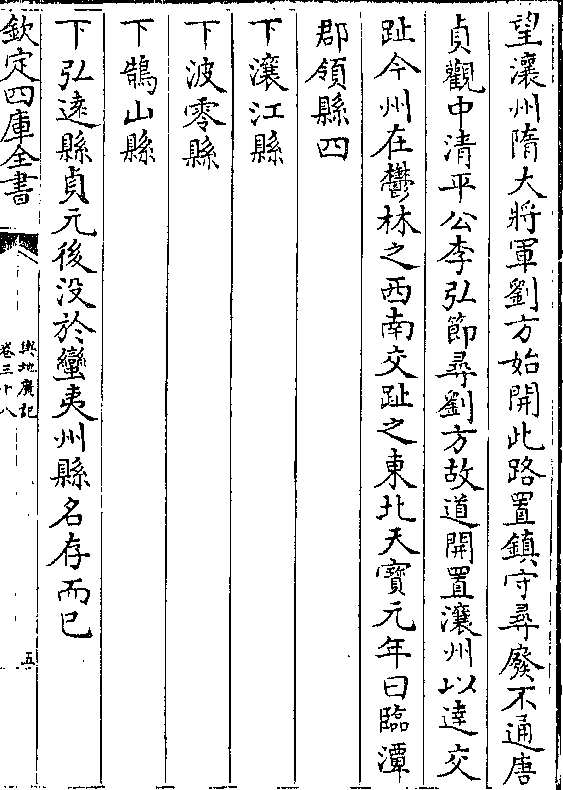 望瀼州隋大將軍劉方始開此路置鎮守尋廢不通唐
貞觀中清平公李弘節尋劉方故道開置瀼州以達交
趾今州在鬱林之西南交趾之東北天寶元年曰臨潭
郡領縣四
下瀼江縣
下波零縣
下鵠山縣
下弘逺縣貞元後没於蠻夷州縣名存而已
欽定四庫全書
輿地廣記
卷三十八
五